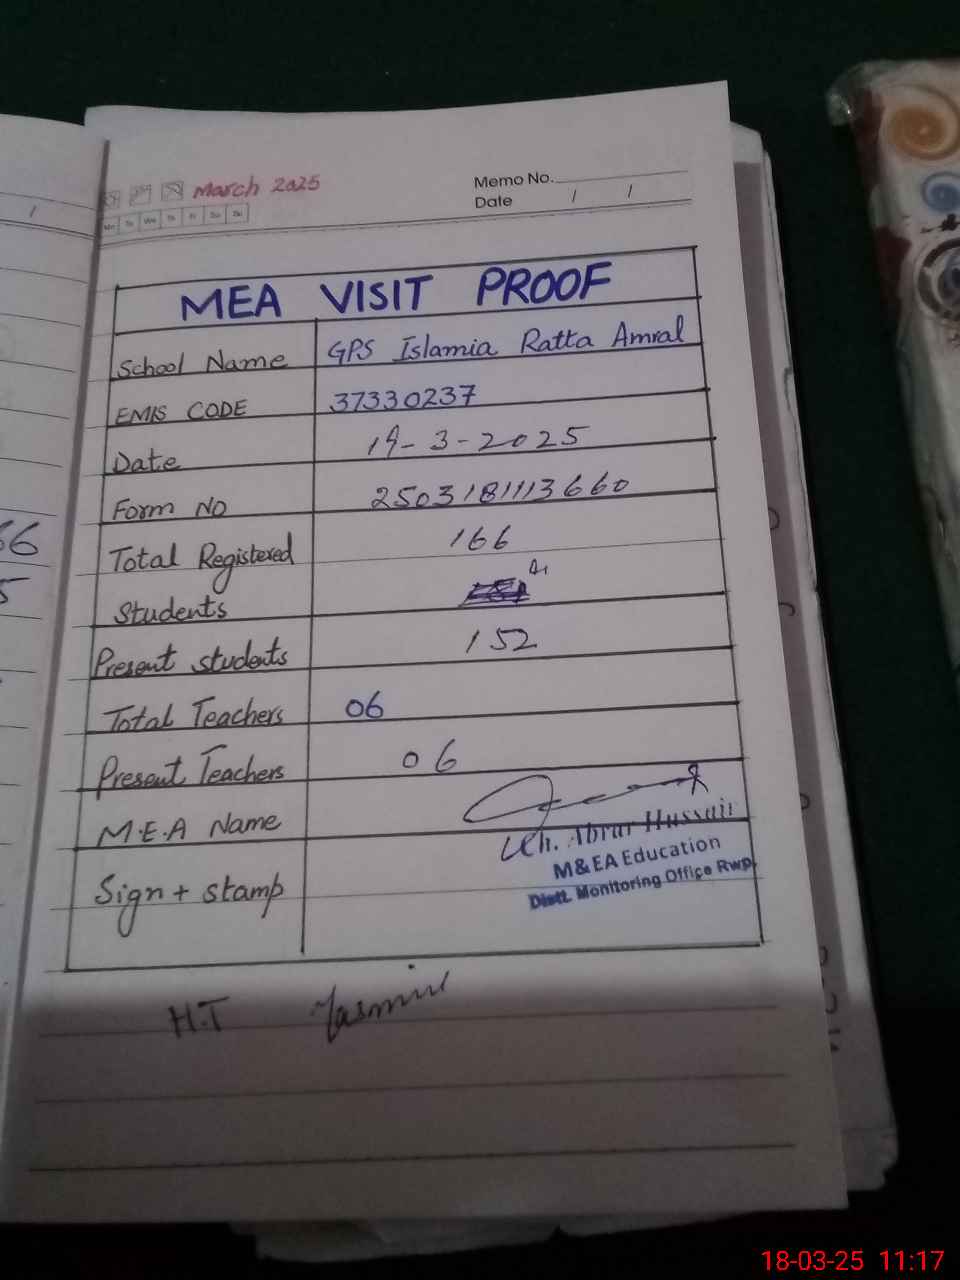 March 2025
Memo No.
Mo Tu We Th Fr Sa Su
Date / /
MEA VISIT PROOF
School Name GPS Islamia Ratta Amral
EMIS CODE 37330237
Date 19-3-2025
Form NO 2503181113660
Total Registered Students 166
Present students 152
Total Teachers 06
Present Teachers 06
M.E.A Name
Ch. Abrar Hussain
Sign + stamp
M&EA Education
Distt. Monitoring Office Rwp.
H.T Yasmin
66
5
18-03-25 11:17